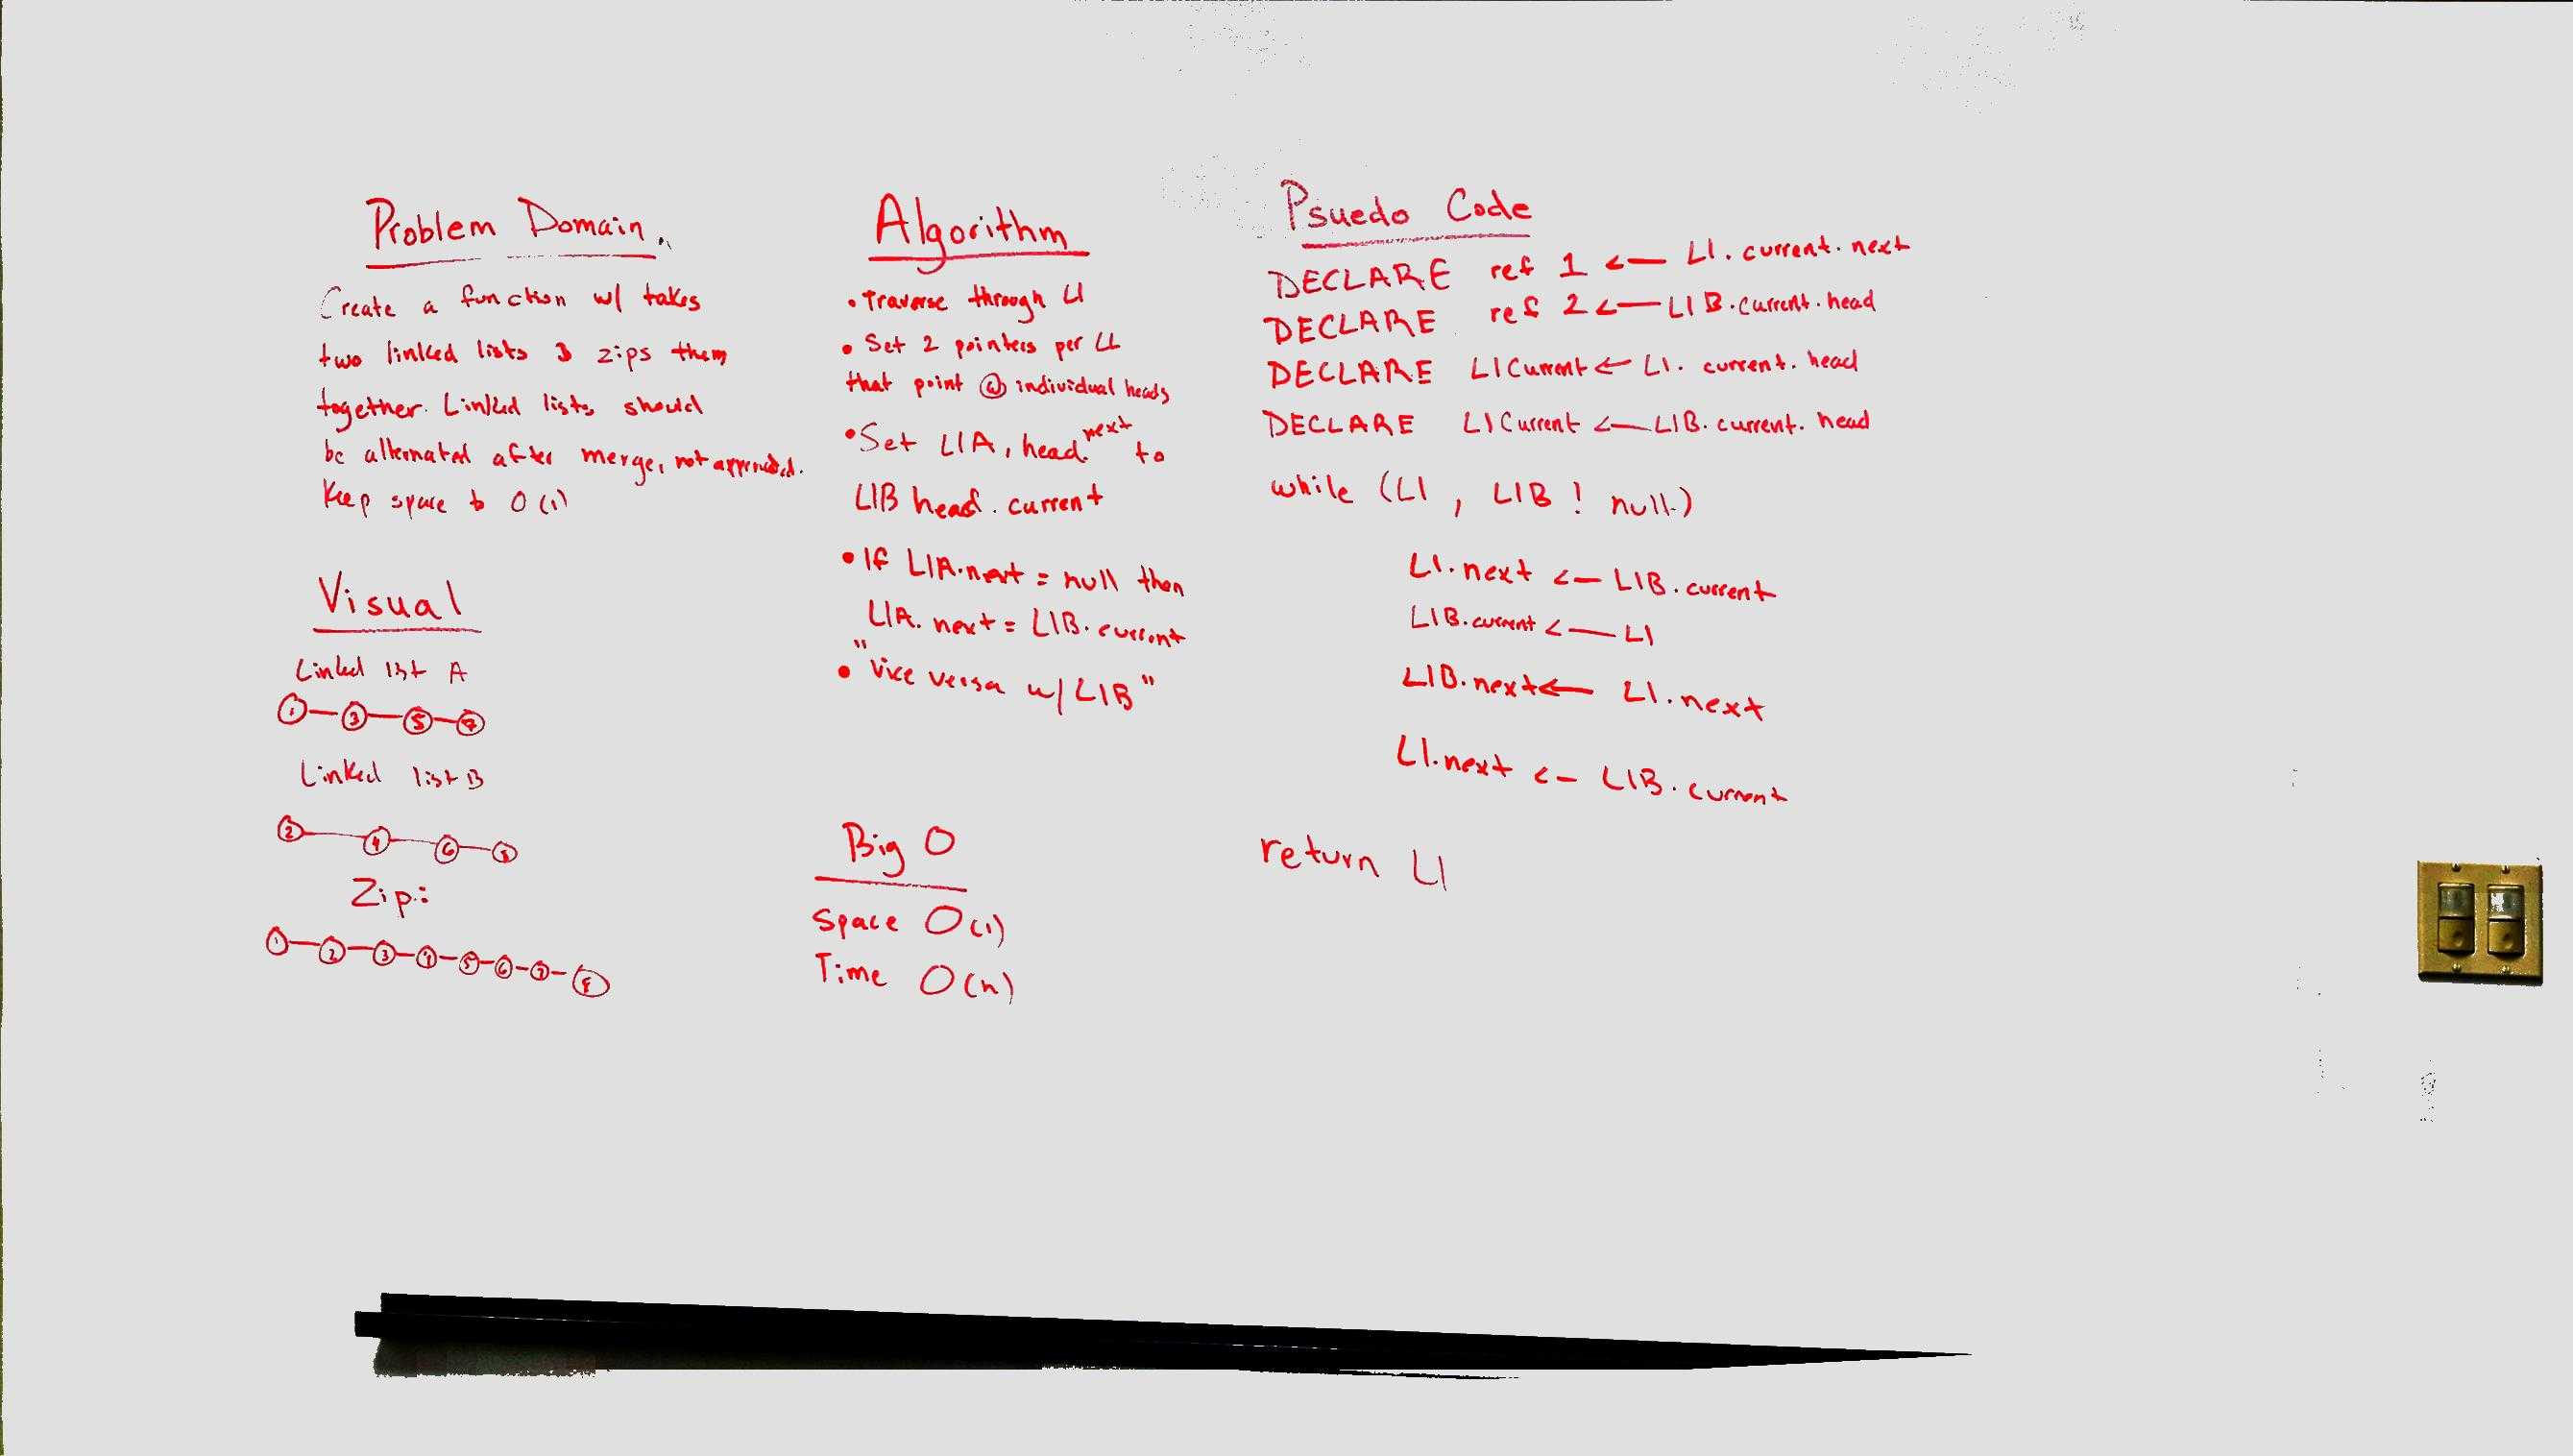 Problem Domain.
Create a function w/ takes
two linked lists & zips them
together. Linked lists should
be alternated after merge, not appended.
Keep space to O(1)
Visual
Linked list A
1 3 5 7
Linked list B
2 4 6 8
Zip:
1 2 3 4 5 6 7 8
Algorithm
• Traverse through Ll
• Set 2 pointers per LL
that point @ individual heads
• Set LIA, head.next to
LIB head.current
• If LIA.next = null then
LIA.next = LIB.current
• "Vice versa w/ LIB"
Big O
Space O(1)
Time O(n)
Psuedo Code
DECLARE ref 1 <— LI.current.next
DECLARE ref 2 <— LIB.current.head
DECLARE LICurrent <— LI.current.head
DECLARE LICurrent <— LIB.current.head
while (LI, LIB ! null)
LI.next <— LIB.current
LIB.current <— LI
LIB.next <— LI.next
LI.next <— LIB.current
return LI